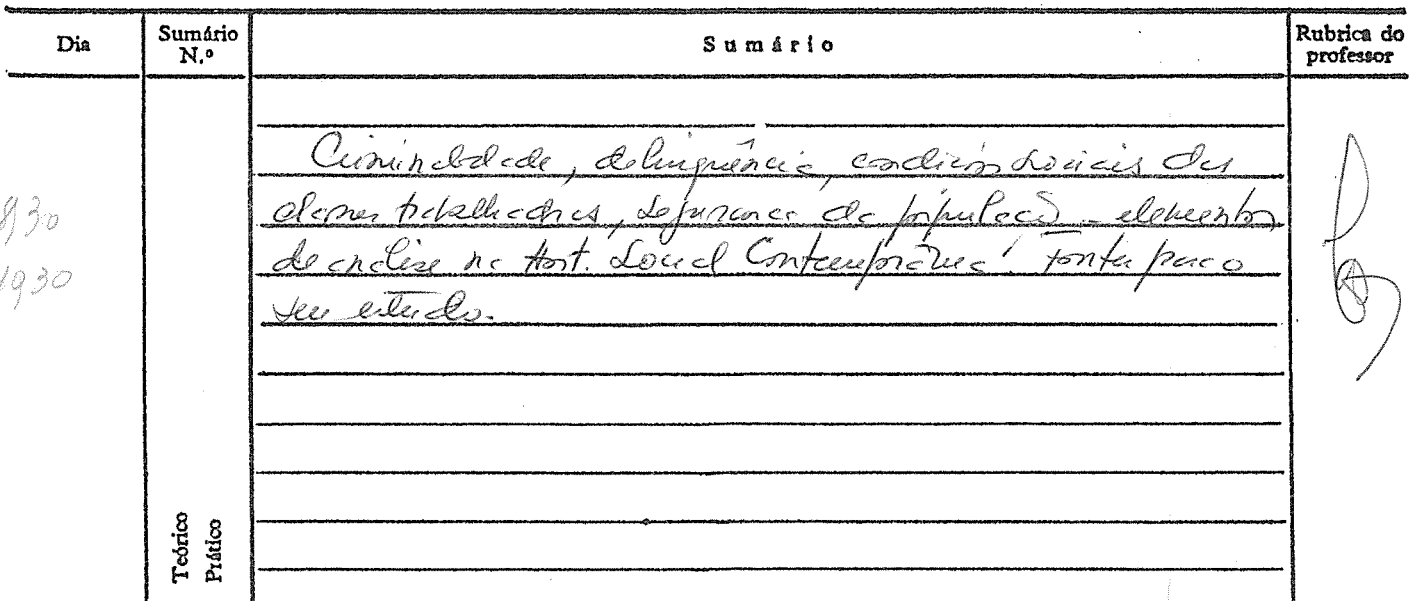 Dia
Sumário N.º
Sumário
Rubrica do professor
Criminalidade, delinquência, condições sociais das
classes trabalhadoras, segurança da população - elementos
de análise na Hist. Social Contemporânea. Fontes para o
seu estudo.
1930
Teórico
Prático